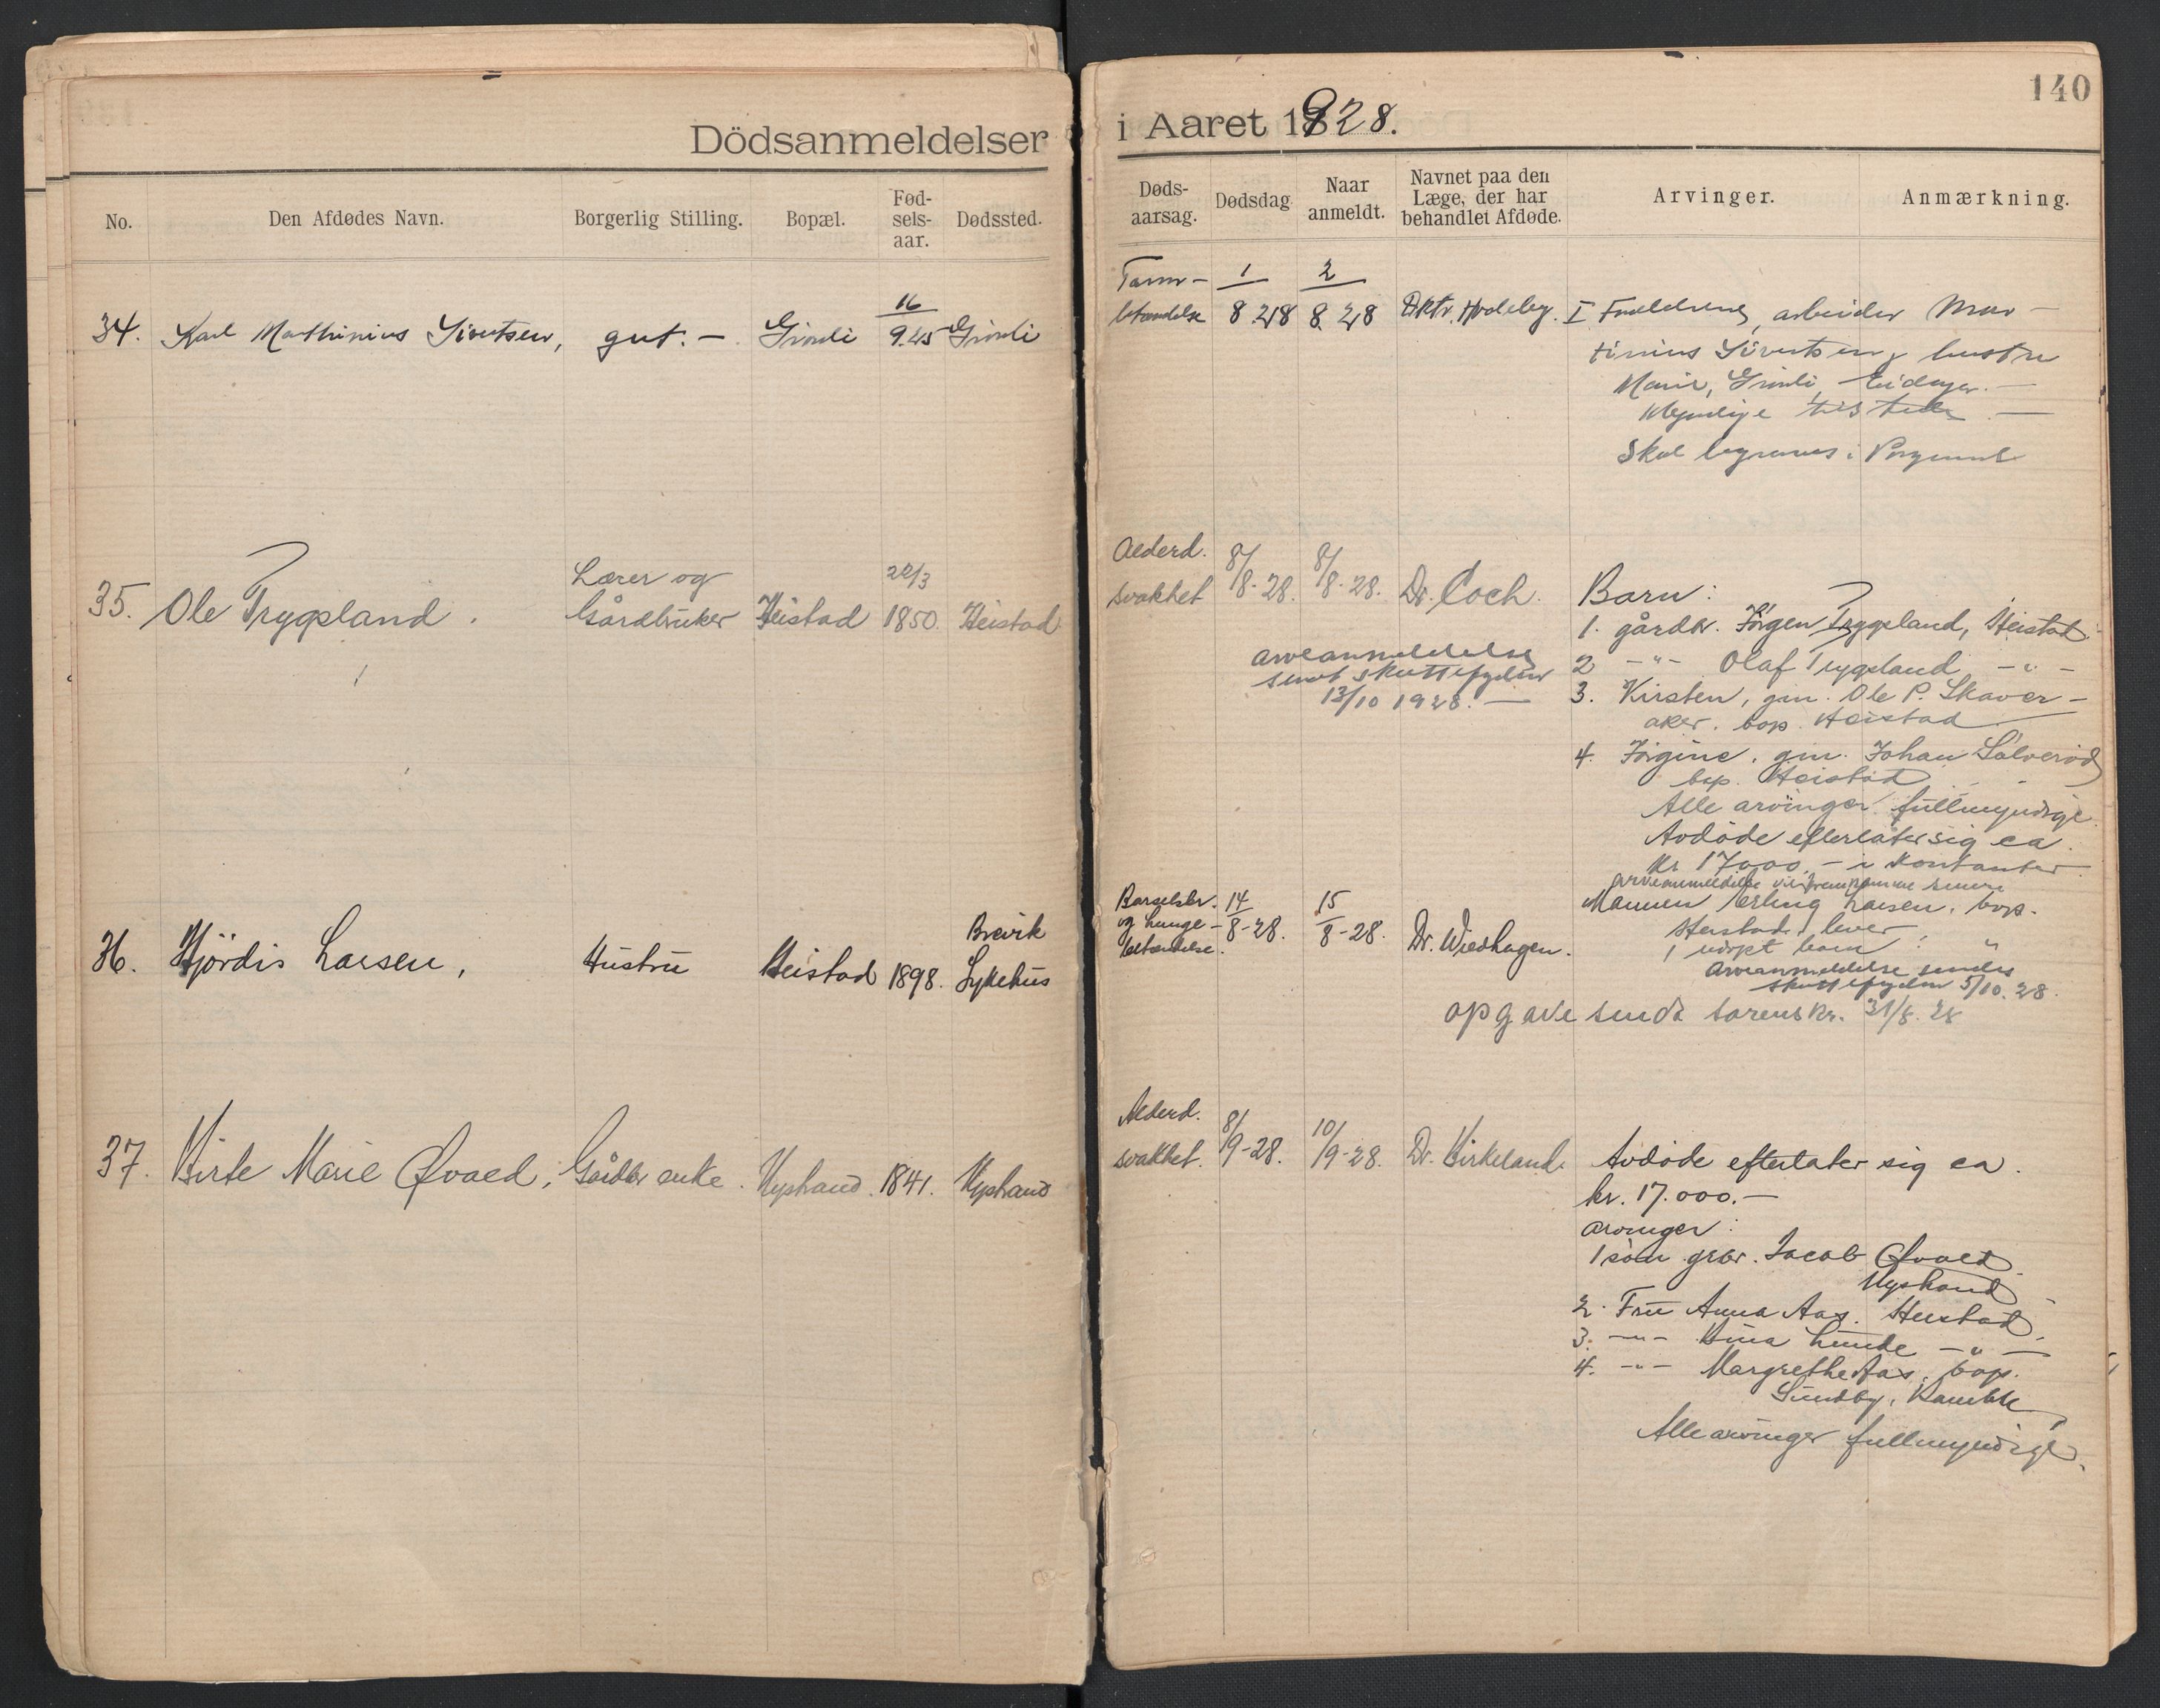 140
Dödsanmeldelser i Aaret 1928.
No. Den Afdødes Navn. Borgerlig Stilling. Bopæl. Fød-sels-aar. Dødssted. Døds-aarsag. Dødsdag Naar anmeldt. Navnet paa den Læge, der har behandlet Afdøde. Arvinger. Anmærkning.
34. Karl Marthinius Sivertsen, gut. -
16
9.25
Tarm-
betændelse
1
8.28
2
8.28
Dktr.
I Foreldrene, arbeider Mar-
tinius Sivertsen, hustru
Marie,
Myndige tilstede. -
Skal begraves i
35. Ole Trygsland.
Lærer og
Gårdbruker Heistad
20/3
1850. Heistad
Alderd.
svakhet
8/
8-28.
8/
8-28.
Dr. Coch.
Barn:
1. gårdbr. Jörgen Trygsland, Heistad.
2 -"- Olaf Trygsland, -"-
3. Kirsten, gm. Ole P. Skaver-
aker. bop. Heistad
4. Jörgine, gm. Johan Sölveröd
bop. Heistad
Alle arvinger fullmyndige.
Avdöde efterlater sig ca.
kr 17000,- i kontanter
arveanmeldelse vil fremkomme senere
arveanmeldelse
sendt skattefogden
13/10 1928. -
36. Hjördis Larsen, Hustru Heistad 1898.
Brevik
Sykehus
Barselsbr.
og Lunge-
betændelse.
14
8-28.
15
8-28.
Dr. Wiedhagen.
Mannen Erling Larsen, bop.
Heistad, lever
1 udöpt barn "
Arveanmeldelse sendes
skattefogden 5/10. 28.
opgave sendt sorenskr. 31/8. 28
37. Birte Marie Qvaed, Gårdbr enke. Nystrand. 1841. Nystrand
Alderd.
svakhet.
8/
9-28.
10/
9-28.
Dr. Kirkeland.
Avdöde efterlater sig ca.
kr. 17.000.-
arvinger:
1 sön grbr. Jacob Qvaed
Nystrand
2. Fru Anna Aas. Heistad.
3. -"- Lunde -"-
4. -"- Margrethe Aas, bop.
Sundby, Bamble
Alle arvinger fullmyndige.